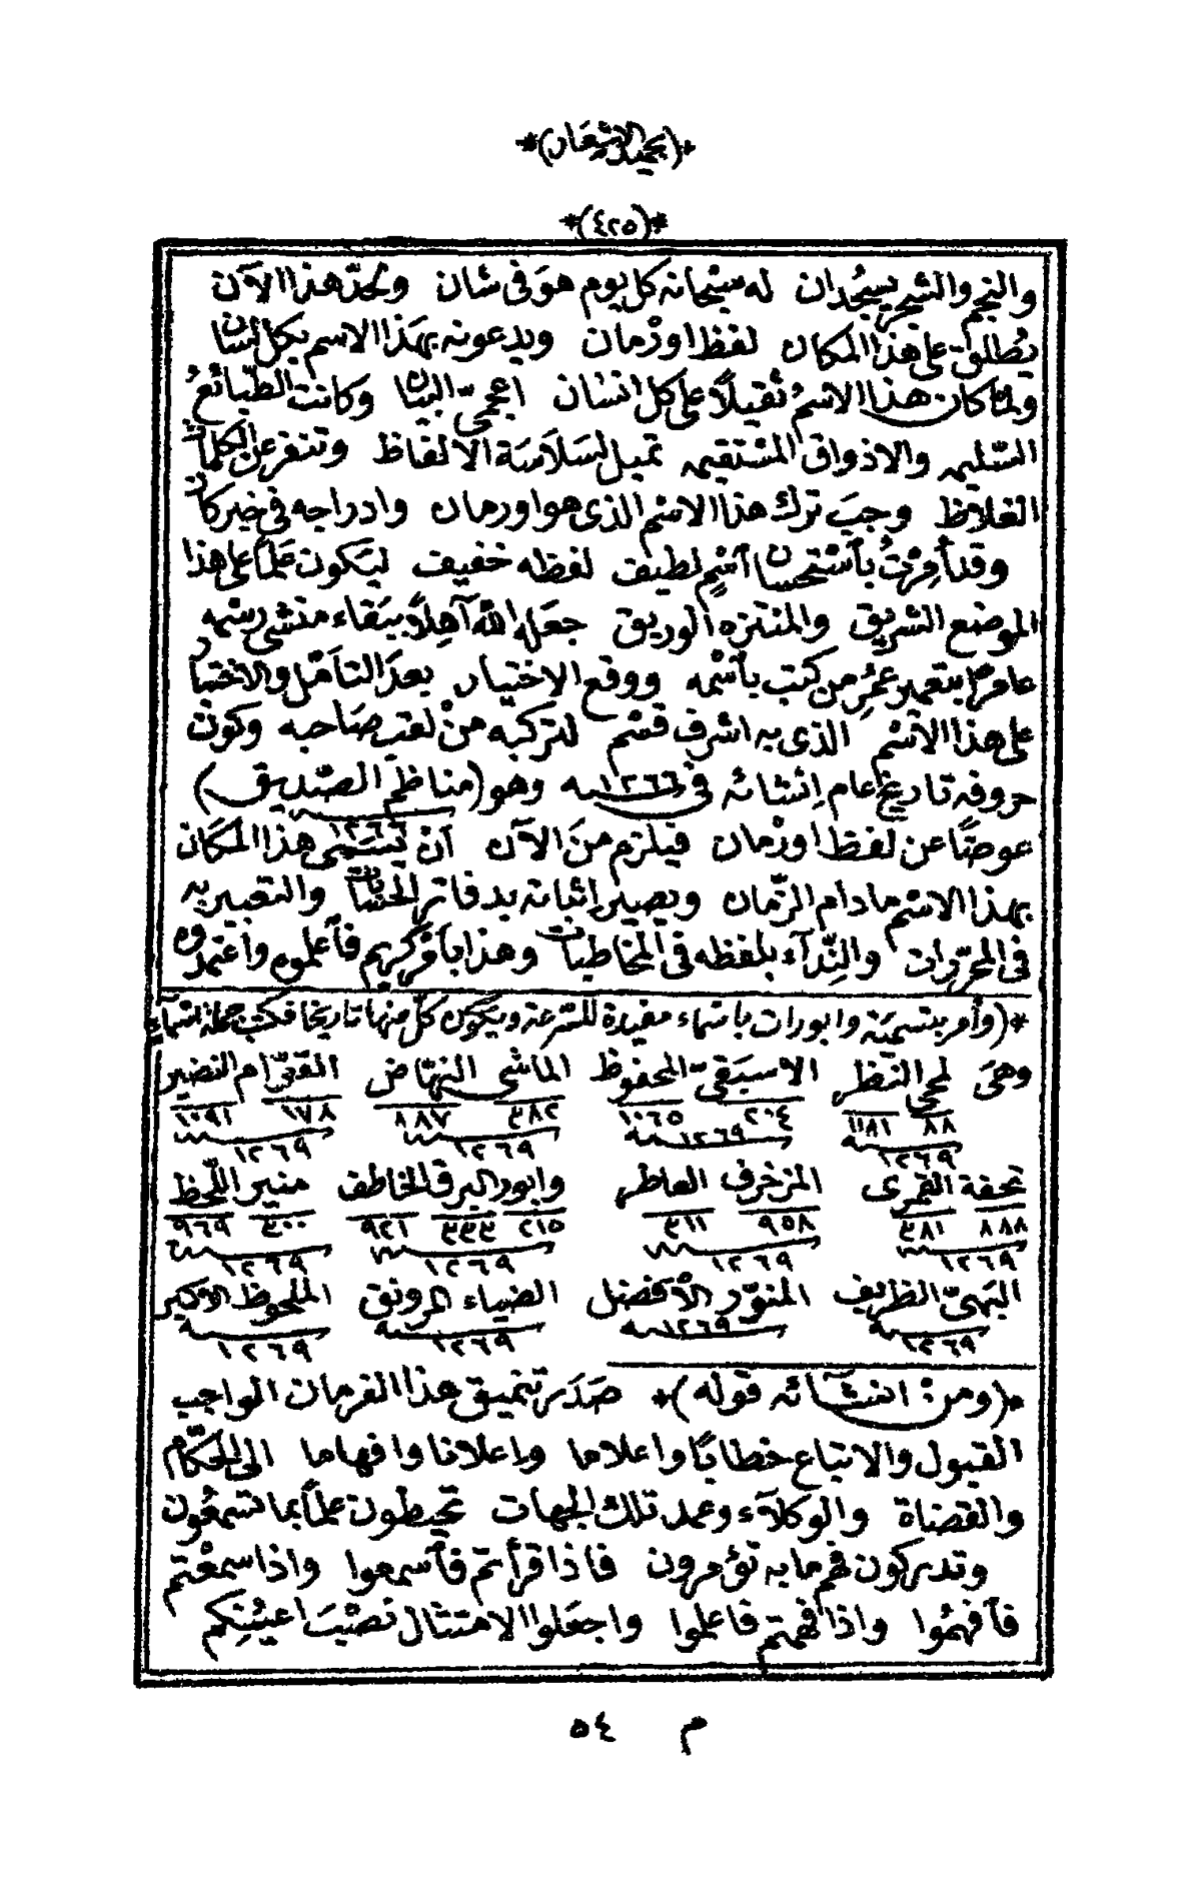 *(بحميد الاشعار)*
*(٤٢٥)*
والنجم والشجر يسجدان له سبحانه كل يوم هو فى شان ولحد هذا الآن
يُطلق على هذا المكان لفظ اوزمان ويدعونه بهذا الاسم بكل لسان
ولما كان هذا الاسمُ ثقيلاً على كل انسان اعجمىّ البيان وكانت الطبائعُ
السليمه والاذواق المستقيمه تميل لسَلَاسَة الالفاظ وتنفر عن الكلمات
الغلاظ وجبَ ترك هذا الاسم الذى هو اوزمان وادراجه فى خبر كان
وقد أمِرْتُ بٱستحسان ٱسْمٍ لطيف لفظه خفيف ليكون علماً على هذا
الموضع الشريق والمنتزه الوريق جعله الله آهلاً ببقاء منشى رسمه
عامرًا بتعمير عُمْرِ من كتب بٱسْمه ووقع الاختيار بعدَ التأمّل والاختبار
على هذا الاسْم الذى به اشرف قسْم لتركبه منْ لقب صَاحبه وكون
حروفه تاريخ عام اِنشائه فى ١٢٦٦ـه وهو (مناظم الصّديق)
١٢٦٦
عوضًا عن لفظ اوزمان فيلزم منَ الآن أنْ تسمّى هذا المكان
بهذا الاسم مادام الزّمان ويصير اِثباته بدفاتر الحسابات والتعبير به
فى المحرّرات والنِّدآء بلفظه فى المخاطبات وهذا بأمْر كريم فٱعلموه وٱعتمدوه
*(وأمر بتسمية وابورات باسماء مفيدة للسّرعة ويكون كلّ منها تاريخا فكتب جملة اسماء
وهىَ لمحى النظر الاسبقىّ المحفوظ الماشى النهّاض القىّام النضير
٨٨ ١١٨١ ٢٠٤ ١٠٦٥ ٣٨٢ ٨٨٧ ١٧٨ ١٠٩١
١٢٦٩ ١٢٦٩ـه ١٢٦٩ ١٢٦٩
تحفة القمرى المزخرف العاطر وابور البرق الخاطف منير اللّحظ
٨٨٨ ٣٨١ ٩٥٨ ٣١١ ٢١٥ ٣٣٣ ٩٢١ ٣٠٠ ٩٦٩
١٢٦٩ ١٢٦٩ ١٢٦٩ ١٢٦٩
البهىّ الظريف المنوّر الأفضل الضياء المرونق الملحوظ الاكبر
١٢٦٩ ١٢٦٩ـه ١٢٦٩ ١٢٦٩
*(ومن انشآئه قوله)* صَدَر تنميق هذا الفرمان الواجب
القبول والاتباع خطابًا واعلاما واعلانا وافهاما الى الحكّام
والقضاة والوكلآء وعمد تلك الجهات تحيطون علماً بما تسمعُون
وتدركون فهم ما به تؤمرون فاذا قرأتم فٱسمعوا واذا سمعتم
فٱفهمُوا واذا فهمتم فاعلموا واجعَلوا الامتثال نصْبَ اعيُنِكم
م ٥٤